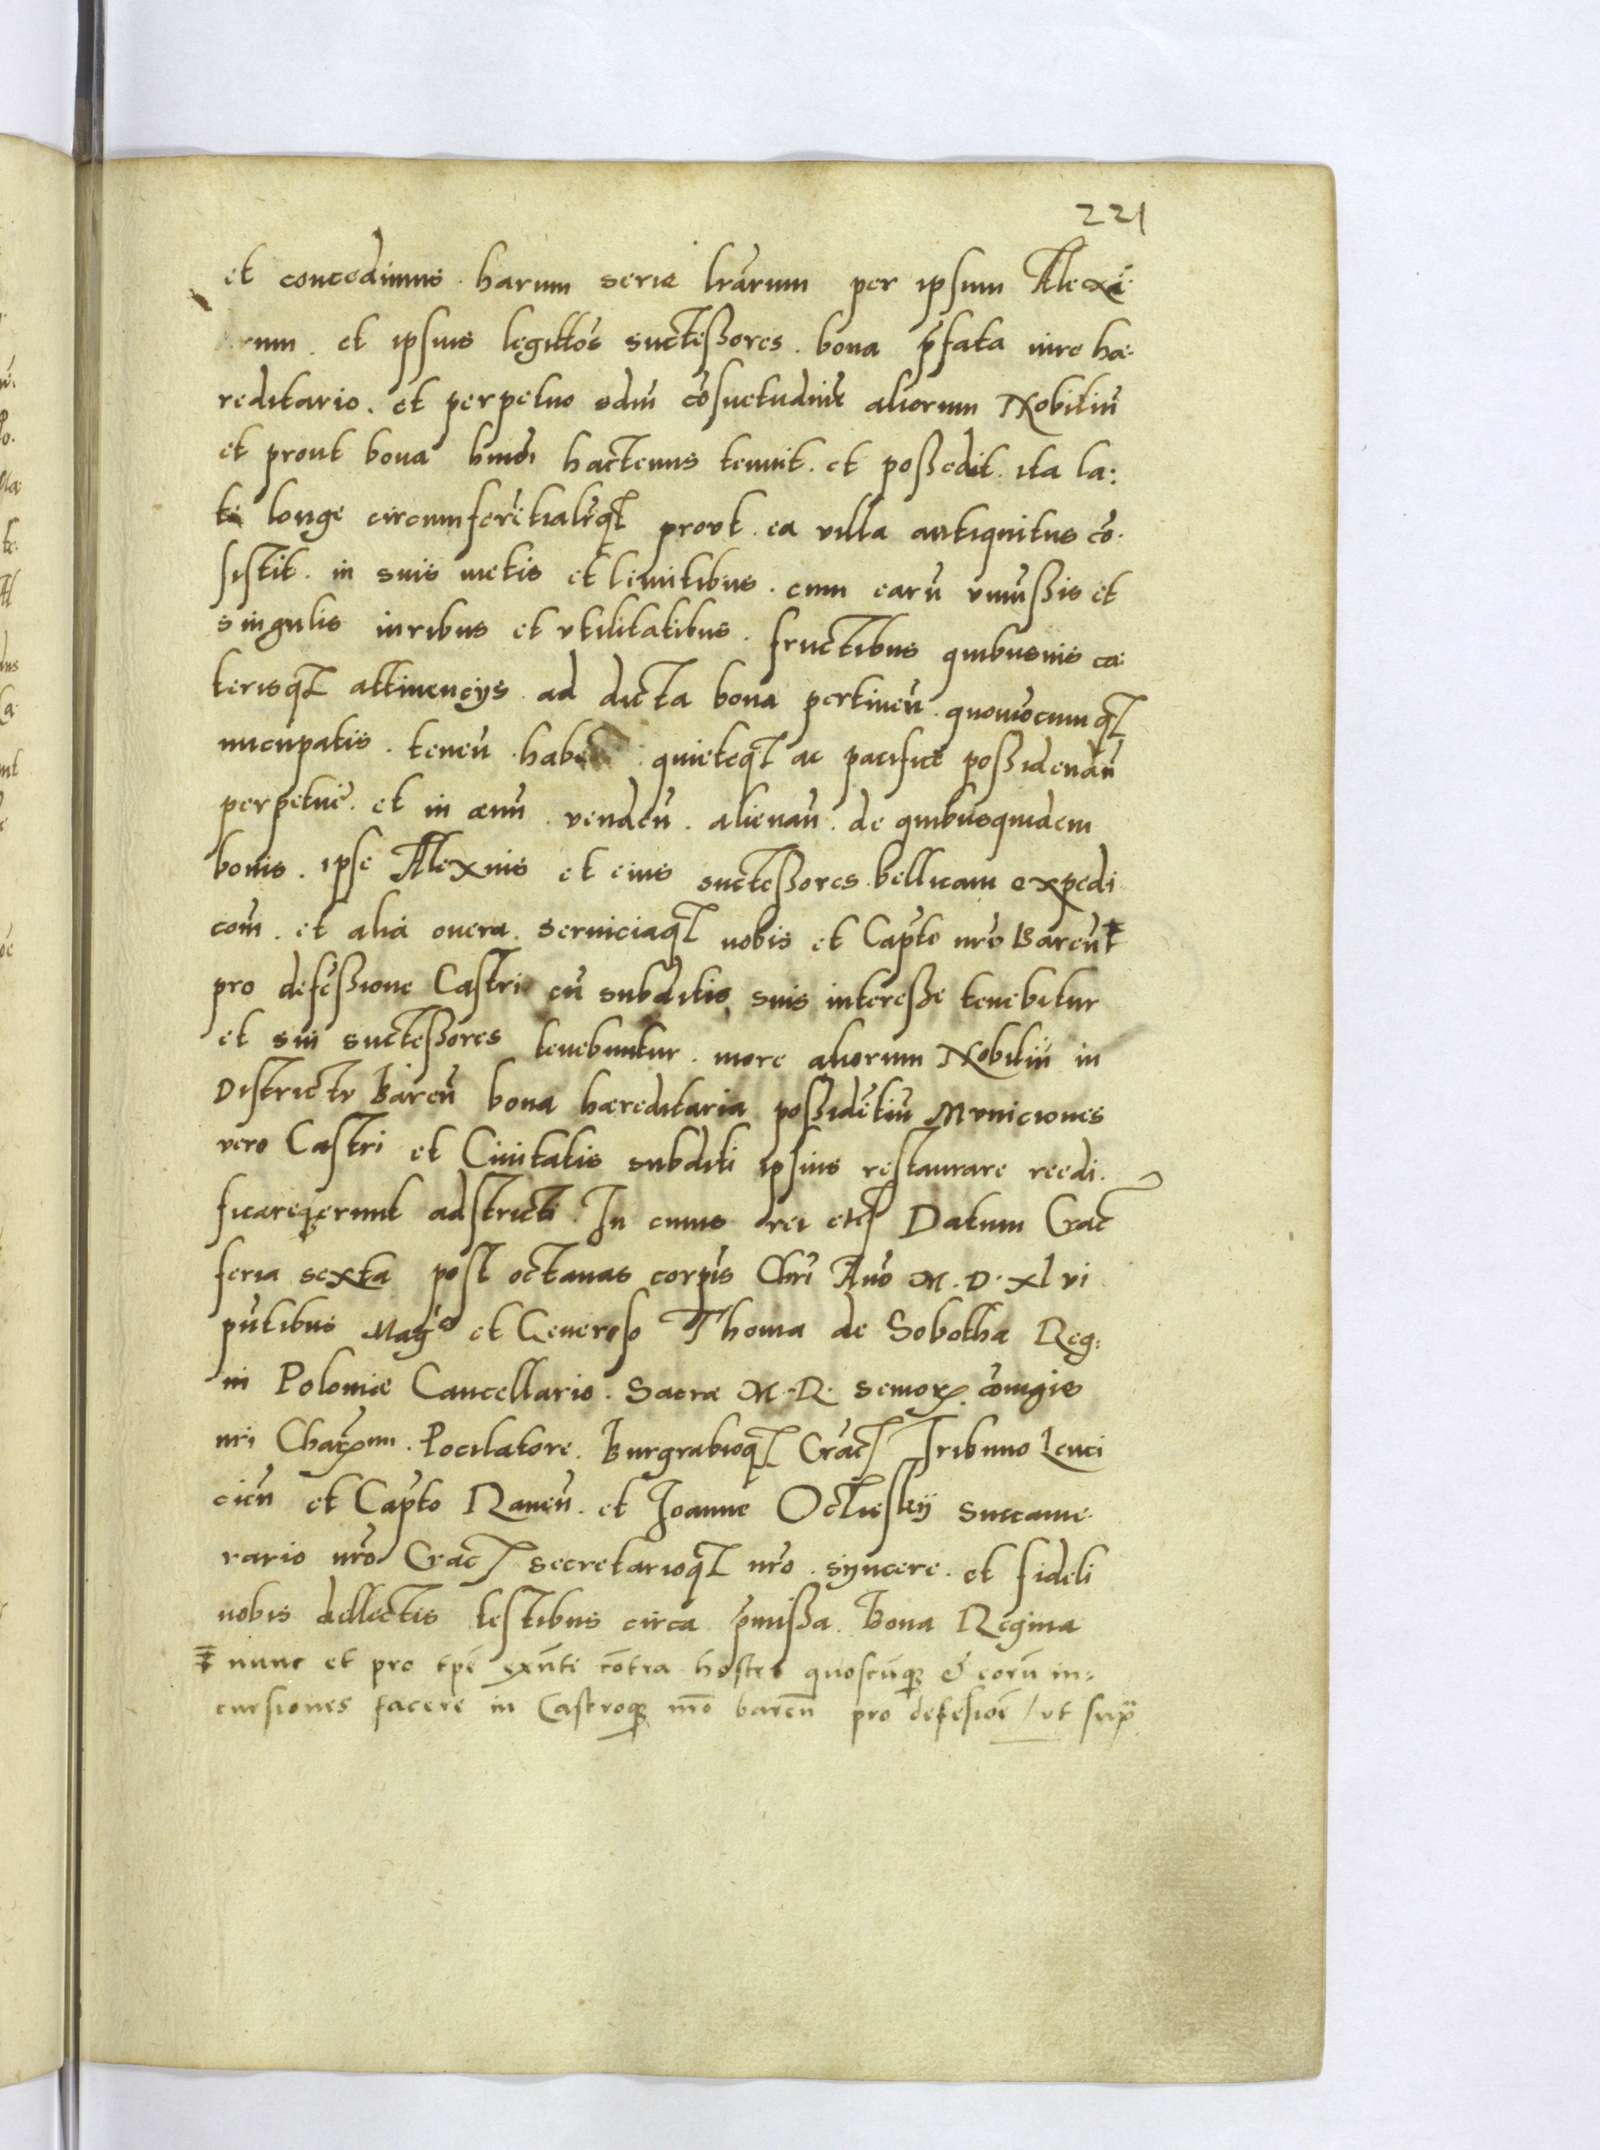 221
et concedimus . harum serie lrārum per ipsum Alexi¨
rum . et ipsius legittōs suctessores . bona p̄fata iure hæ-
reditario . et perpetuo scdm̄ cōsuetudinē aliorum Nobiliū
et prout bona hmōi hactenus tenuit . et possedit . ita la:
te longe circumferētialiteqꝫ prout . ea villa antiquitus cō-
sistit . in suis metis et limitibus . cum earū vniussis et
singulis iuribus et vtilitatibus . fructibus quibusuis cæ
terisqꝫ attinencijs . ad dicta bona pertineñ . quouocumqꝫ
nucupatis . teneñ . habe quieteqꝫ ac pacifice possidenāñ
perpetuē . et in æuū . vendeñ . alienañ . de quibusquidem
bonis . ipse Alexius et eius suctessores . bellicam expedi
com̄ . et alia onera . seruiciaqꝫ nobis et Capto nrō Bareñ ⸸
pro defēssione Castri cū subditis suis interesse tenebitur
et sui suctessores tenebuntur . more aliorum Nobiliū in
Districtu Bareñ bona hæreditaria possidētiū Municiones
vero Castri et Ciuitatis subditi ipsius restaurare reedi-
ficareqꝫ erunt adstricti . In cuius rei etc Datum Crac
feria sexta post octauas corpis Chrī Anō M . D . xl vi
pn̄tibus Magco et Generoso Thoma de Sobotha Reg:
ni Poloniæ Cancellario . Sacræ M . R . seniorꝭ . cōiugis
nri Charmi . Pocilatore . Burgrabioqꝫ Crac Tribuno Lenci
cieñ et Capto Raueñ . et Joanne Octiesky Succame-
rario nrō Crac secretarioqꝫ nrō . syncere . et fideli
nobis dellectis testibus circa p̄missa . Bona Regina
⸸ nunc et pro tpē exn̄ti cōtra hostes quoscūqꝫ & eorū in=
cursiones facere in Castroqꝫ nrō bareñ pro defesiōe / vt sup̄